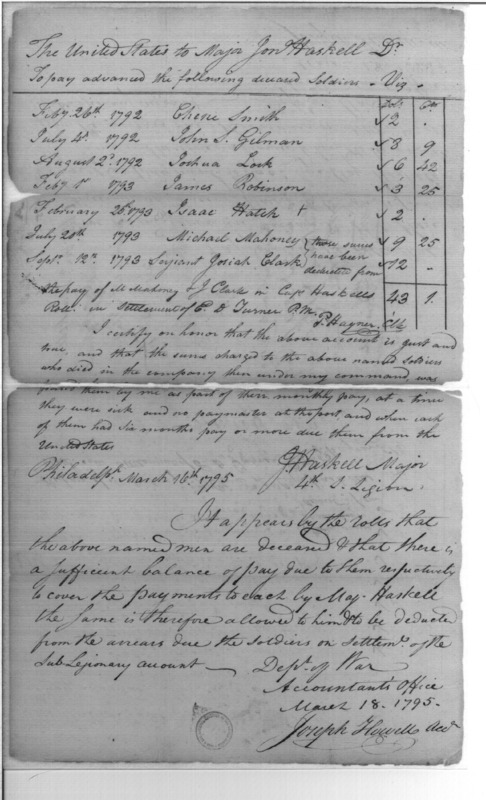 The United States to Major Jon Haskell Dr
To pay advanced the following deceased Soldiers - Viz -
Dols Cts
Feby 26th 1792 Smith 2 .
July 4th 1792 John S. Gilman 8 9
August 2d 1792 Joshua Lock 6 42
Feby 1st 1793 James Robinson 3 25
February 26th 1793 Isaac Hatch + 2 .
July 20th 1793 Michael Mahoney 9 25
Sept. 12th 1793 Serjeant Josiah Clark 12 -
these sums
have been
deducted from
the pay of M Mahoney & J Clark in Capt Haskells 43 1.
Roll in settlement of E D Turner P.M.
P. Hagner Clk
I certify on honor that the above account is just and
true, and that the sums charged to the above named soldiers
who died in the company then under my command, was
them by me as part of there monthly pay, at a time
they were sick and no paymaster at the post, and when each
of them had six months pay or more due them from the
United States
Philadelpa. March 16th. 1795 J Haskell Major
4th S. Legion.
It appears by the rolls that
the above named men are deceased & that there is
a sufficient balance of pay due to them respectively
to cover the payments to each by Maj. Haskell
the same is therefore allowed to him & to be deducted
from the arrears due the soldiers on settlemt. of the
Sub Legionary account -
Dept. of War
Accountant's Office
March 18. 1795.
Joseph Howell Acct